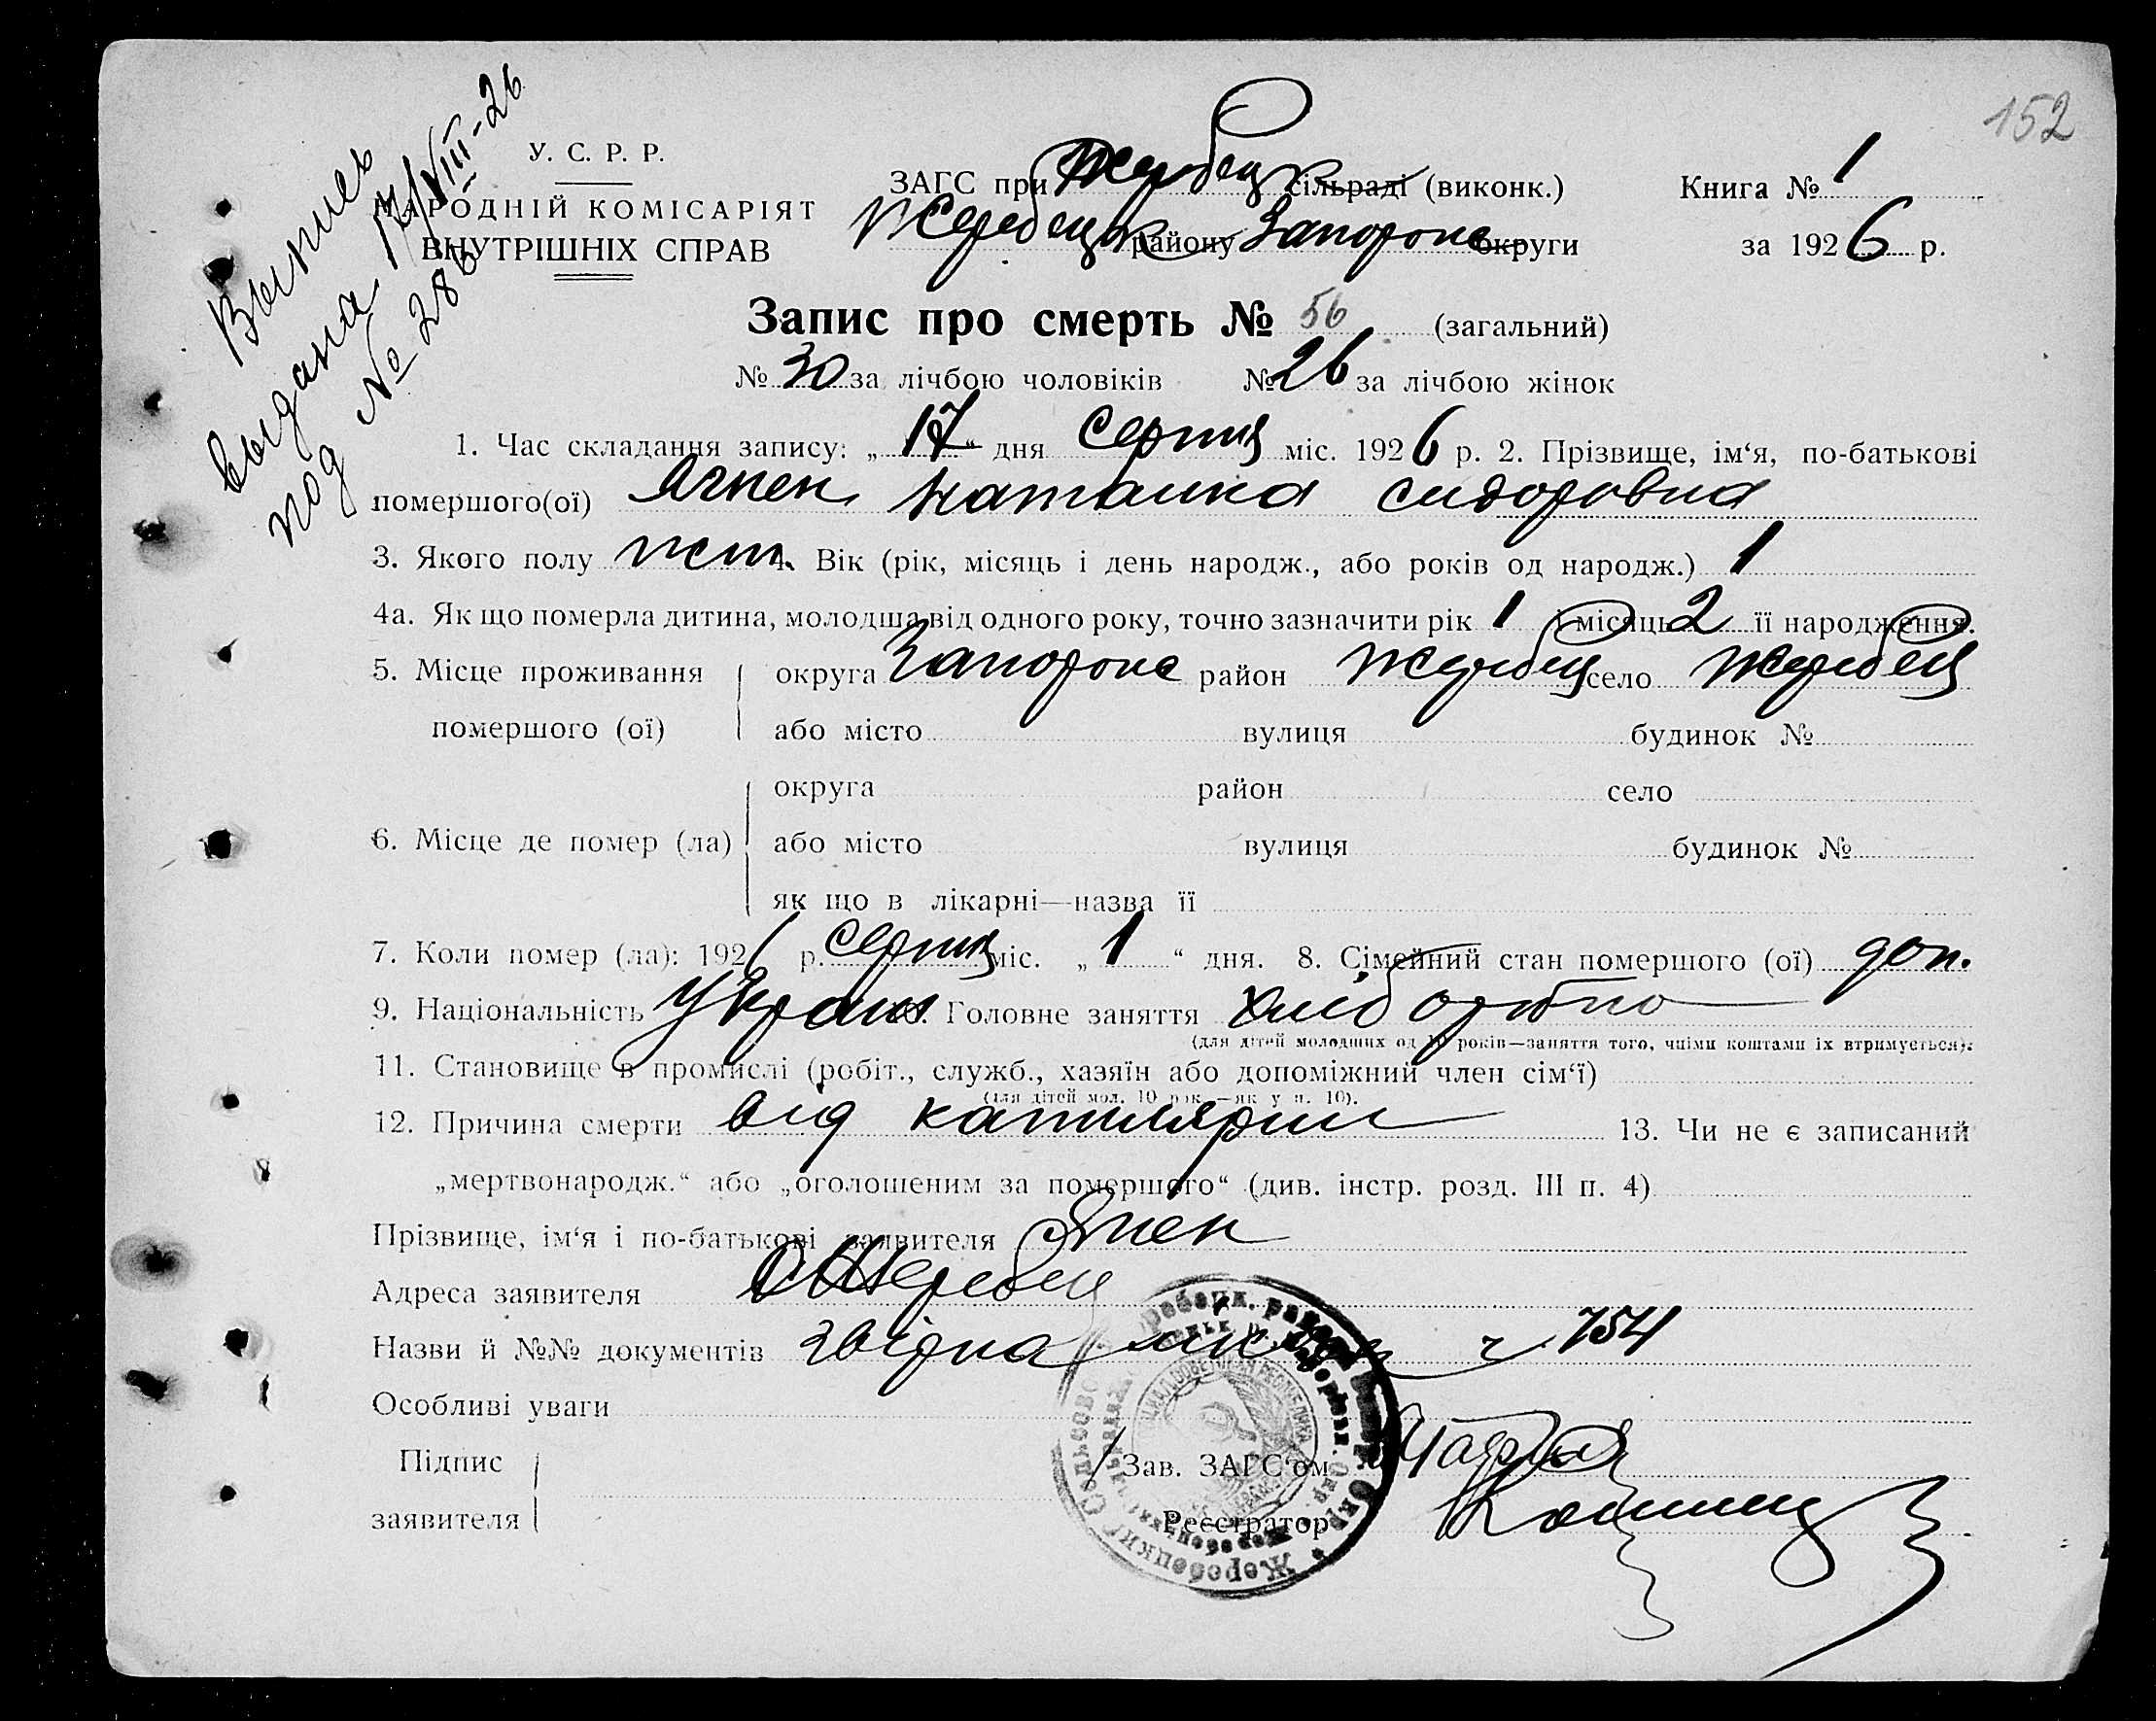 152
Выпись
выдана 17/VIII-26
под № 286
У. С. Р. Р.
НАРОДНІЙ КОМІСАРІЯТ
ВНУТРІШНІХ СПРАВ
ЗАГС при Жеребецк сільраді (виконк.)
Жеребецьк району Запорожс округи
Книга № 1
за 1926 р.
Запис про смерть № 56 (загальний)
№ 30 за лічбою чоловіків № 26 за лічбою жінок
1. Час складання запису: „17“ дня Серпня міс. 1926 р. 2. Прізвище, ім‘я, по-батькові
помершого(ої) Ягнен Наталка Сидоровна
3. Якого полу жін. 4. Вік (рік, місяць і день народж., або років од народж.) 1
4а. Як що померла дитина, молодша від одного року, точно зазначити рік 1 і місяць 2 її народження.
5. Місце проживання помершого (ої) округа Запорожс район Жеребец село Жеребец
або місто вулиця будинок №
6. Місце де помер (ла) округа район село
або місто вулиця будинок №
як що в лікарні—назва її
7. Коли помер (ла): 1926 р. Серпня міс. „1“ дня. 8. Сімейний стан помершого (ої) доп.
9. Національність Україн 10. Головне заняття хліборобство
(для дітей молодших од 10 років—заняття того, чиїми коштами їх втримується).
11. Становище в промислі (робіт., служб., хазяїн або допоміжний член сім‘ї)
(для дітей мол. 10 рок.—як у п. 10).
12. Причина смерти від капилярии 13. Чи не є записаний
„мертвонародж.“ або „оголошеним за помершого“ (див. інстр. розд. III п. 4)
Прізвище, ім‘я і по-батькові заявителя
Адреса заявителя С Жеребец
Назви й №№ документів звідка ч. 754
Особливі уваги
Підпис
заявителя
Зав. ЗАГС‘ом
Реєстратор